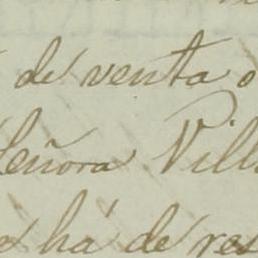 de venta o
Señora Vill
há de res